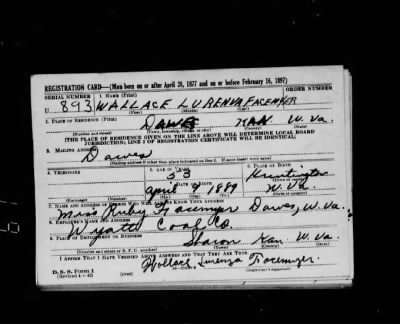 REGISTRATION CARD—(Men born on or after April 28, 1877 and on or before February 16, 1897)
SERIAL NUMBER 1. NAME (Print) ORDER NUMBER
U 893 WALLACE LURENVA FACEMYER
(First) (Middle) (Last)
2. PLACE OF RESIDENCE (Print)
DAWES KAN W. Va.
(Number and street) (Town, township, village, or city) (County) (State)
[THE PLACE OF RESIDENCE GIVEN ON THE LINE ABOVE WILL DETERMINE LOCAL BOARD
JURISDICTION; LINE 2 OF REGISTRATION CERTIFICATE WILL BE IDENTICAL]
3. MAILING ADDRESS
Dawes
[Mailing address if other than place indicated on line 2. If same insert word same]
4. TELEPHONE 5. AGE IN YEARS 6. PLACE OF BIRTH
53 Huntington
DATE OF BIRTH (Town or county)
April W. Va.
(Exchange) (Number) (Mo.) (Day) (Yr.) (State or country)
7. NAME AND ADDRESS OF PERSON WHO WILL ALWAYS KNOW YOUR ADDRESS
Miss Ruby Facemyer Dawes, W. Va.
8. EMPLOYER'S NAME AND ADDRESS
Wyatt Coal Co.
9. PLACE OF EMPLOYMENT OR BUSINESS
Sharon Kan W. Va.
(Number and street or R. F. D. number) (Town) (County) (State)
I AFFIRM THAT I HAVE VERIFIED ABOVE ANSWERS AND THAT THEY ARE TRUE.
D. S. S. Form 1 Wallace Lurenza Facemyer
(Revised 4-1-42) (over) (Registrant's signature)